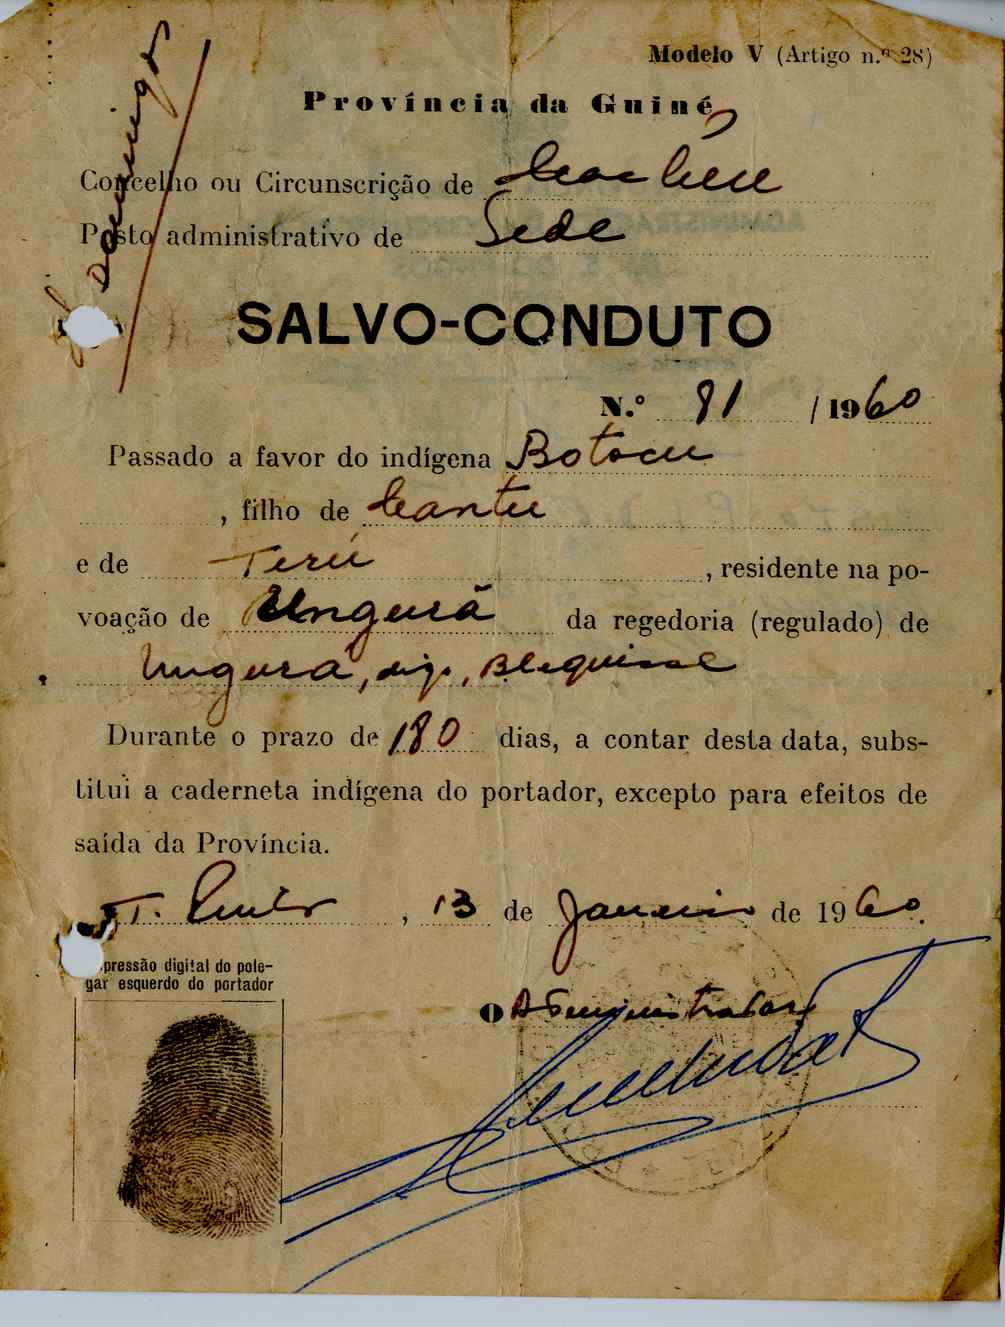 Modelo V (Artigo n.º 28)
Província da Guiné
Domingos
Concelho ou Circunscrição de Cacheu
Posto administrativo de Sede
SALVO-CONDUTO
N.º 91 / 1960
Passado a favor do indígena Botocu
, filho de Cantu
e de Terú , residente na po-
voação de Ungurã da regedoria (regulado) de
Ungurã, Blequisse
Durante o prazo de 180 dias, a contar desta data, subs-
titui a caderneta indígena do portador, excepto para efeitos de
saída da Província.
T. Pinto , 13 de Janeiro de 1960.
pressão digital do pole-
gar esquerdo do portador
O Administrador,